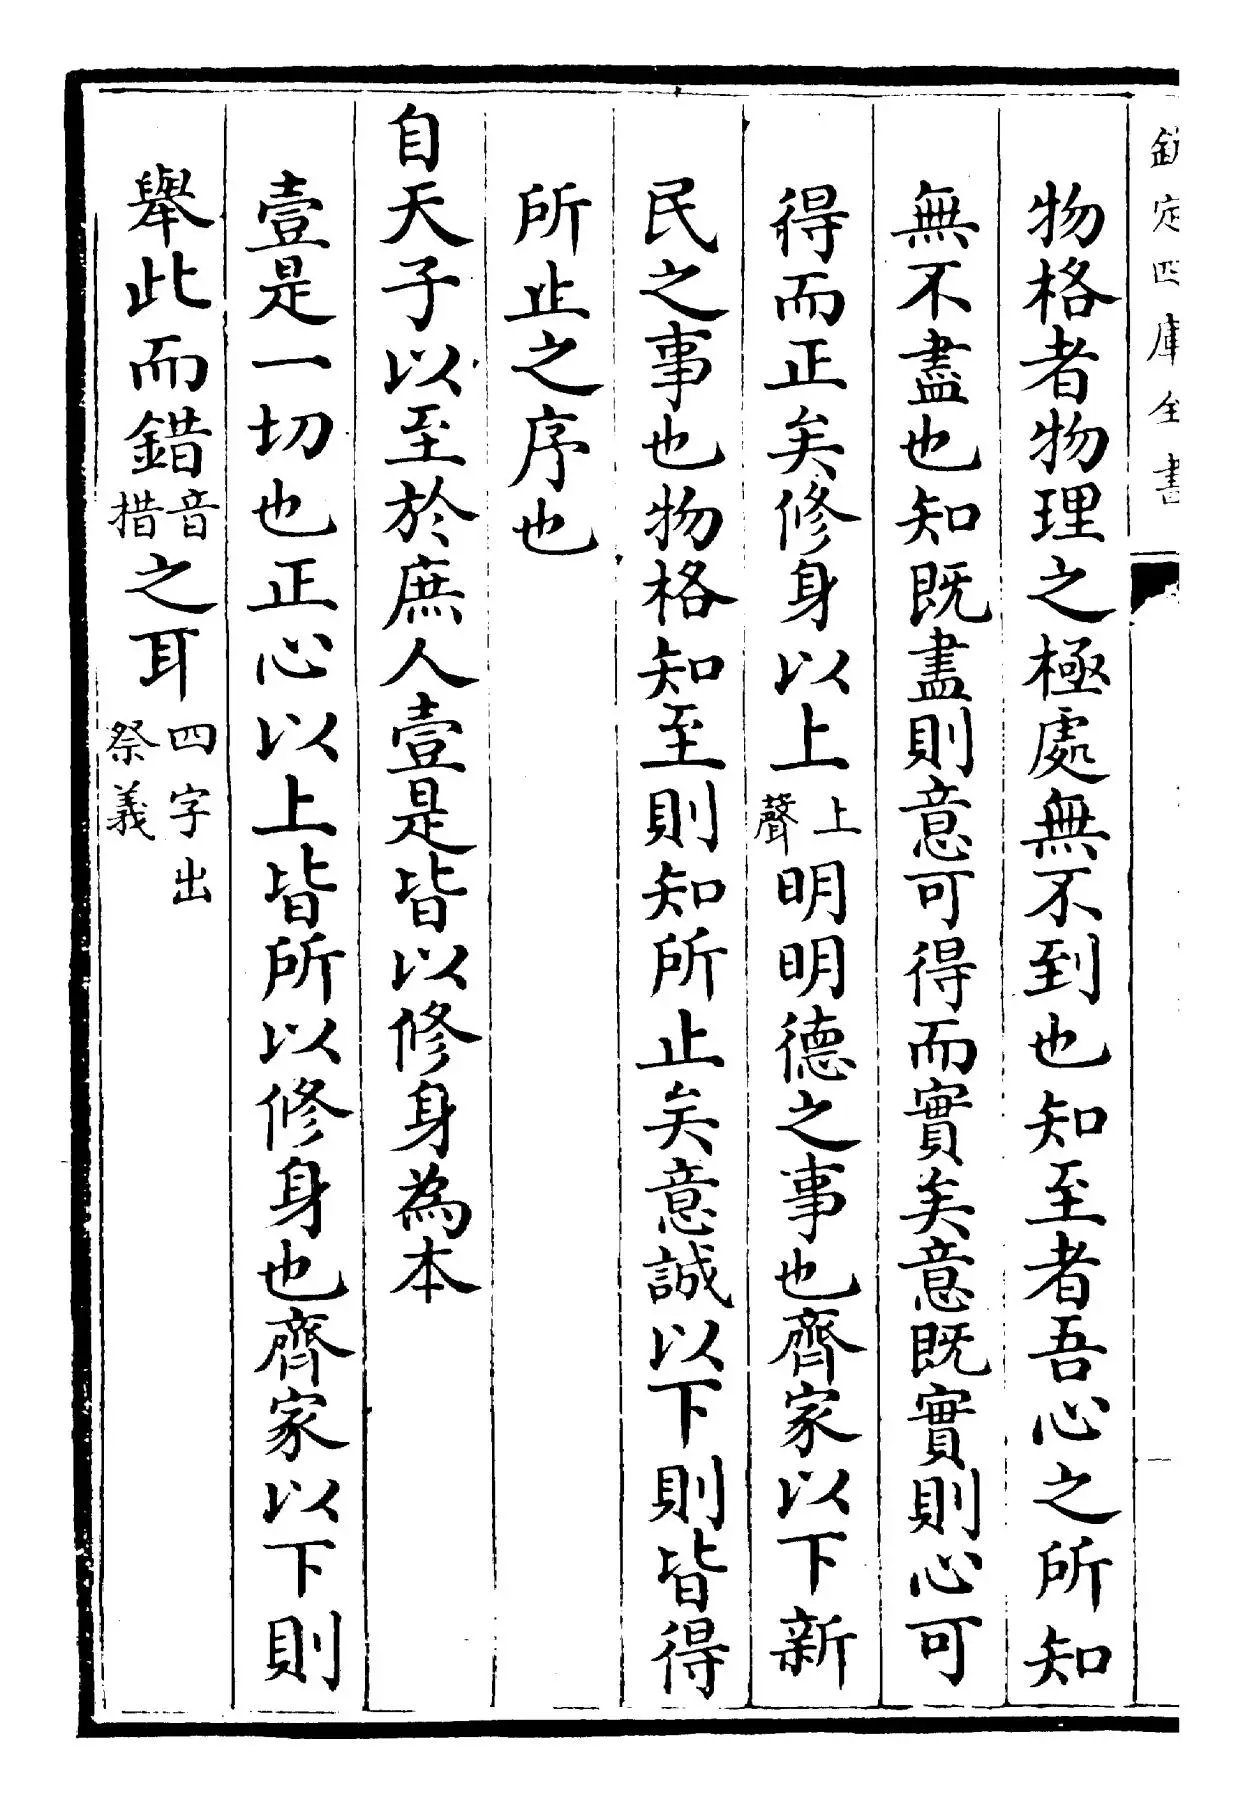 欽定四庫全書
物格者物理之極處無不到也知至者吾心之所知
無不盡也知既盡則意可得而實矣意既實則心可
得而正矣修身以上上聲明明德之事也齊家以下新
民之事也物格知至則知所止矣意誠以下則皆得
所止之序也
自天子以至於庶人壹是皆以修身為本
壹是一切也正心以上皆所以修身也齊家以下則
舉此而錯音措之耳四字出祭義